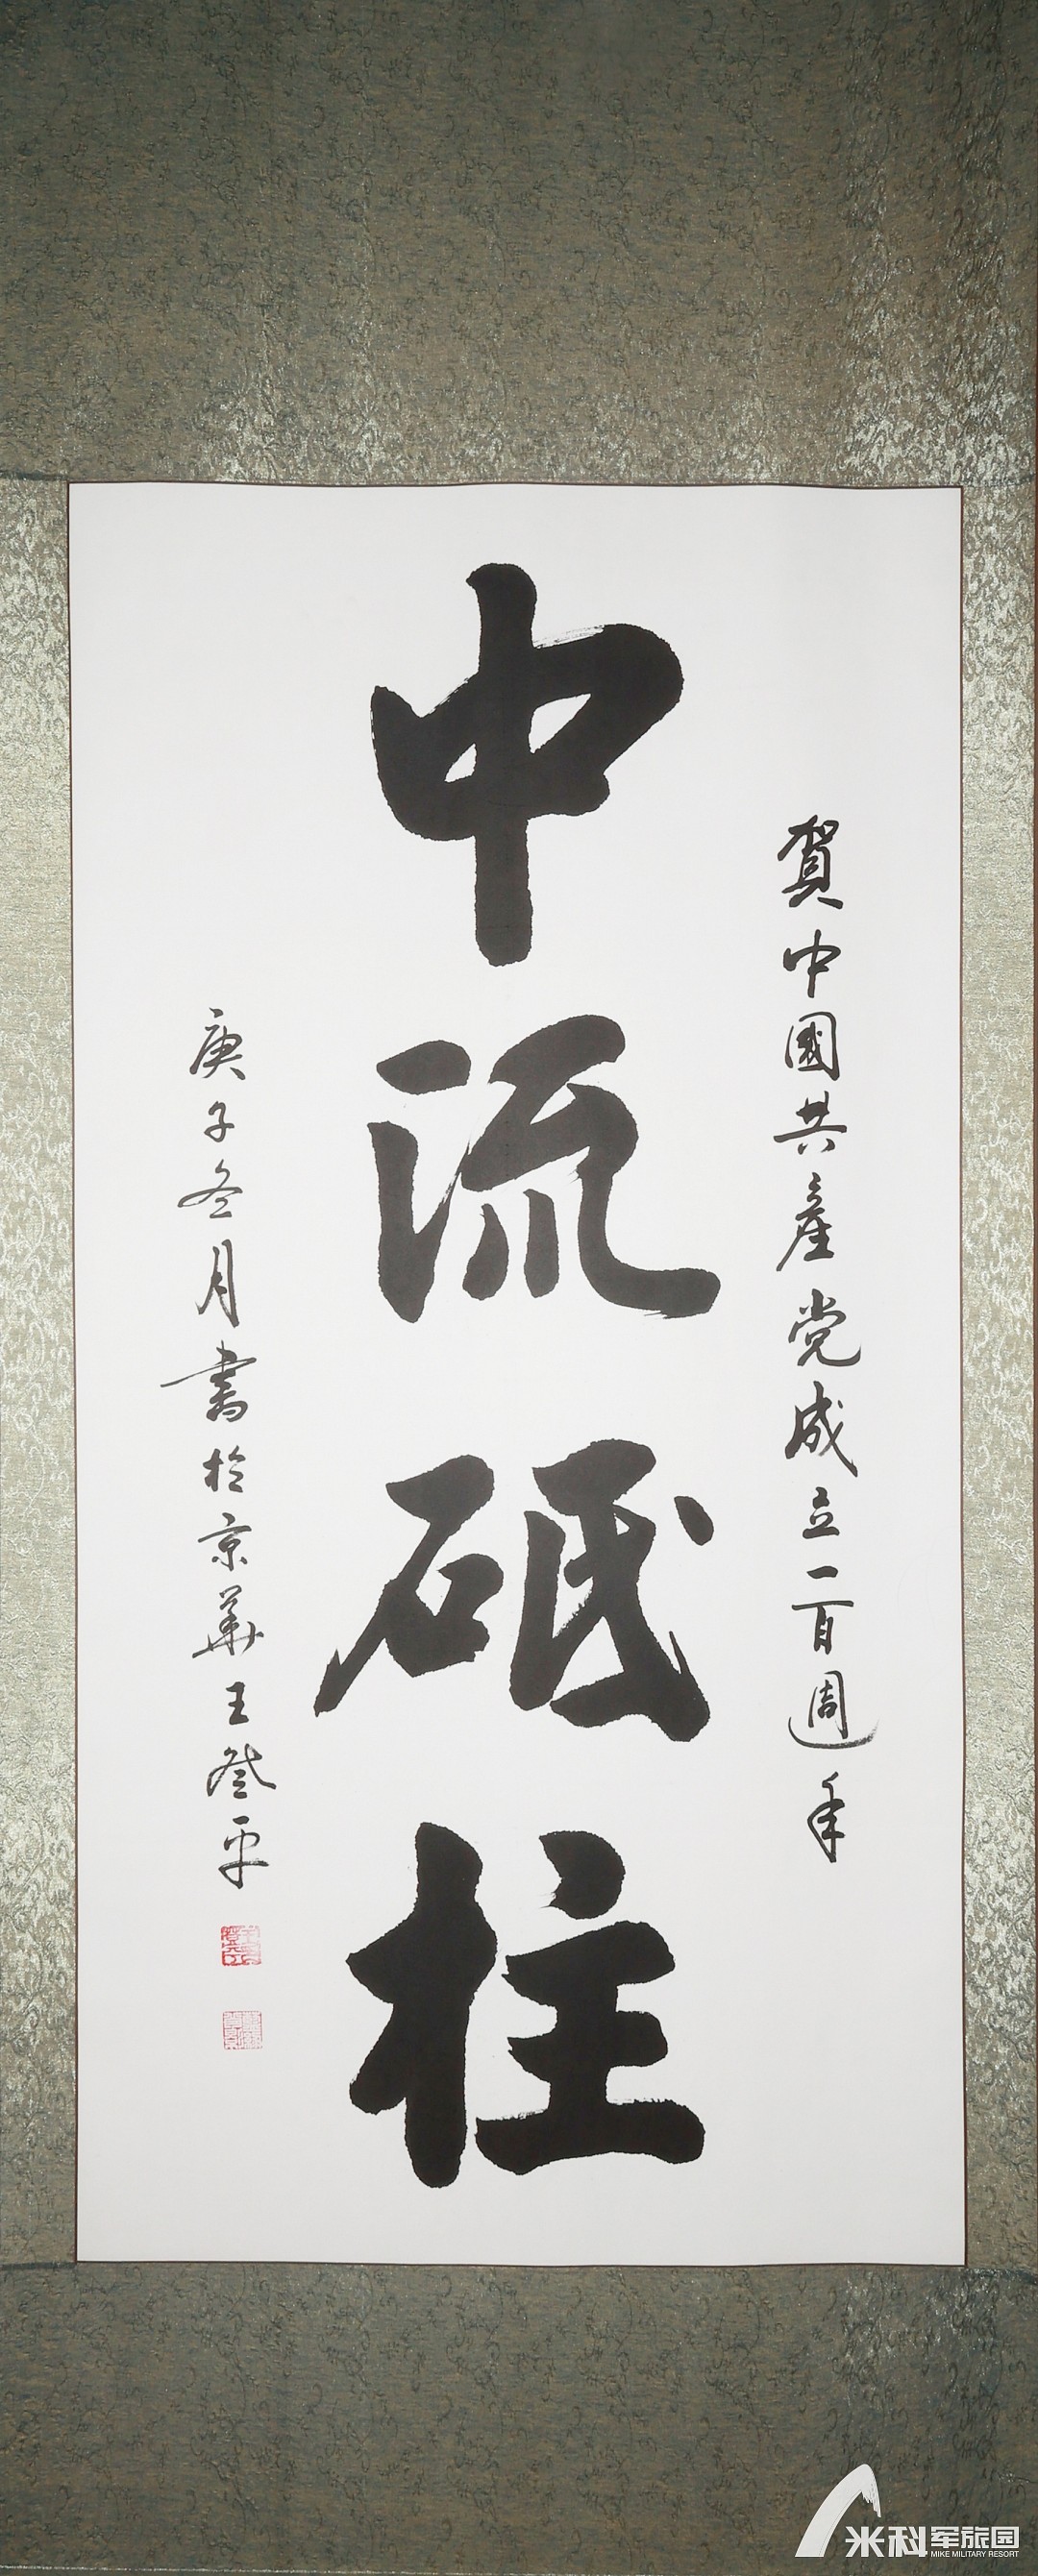 賀中國共產党成立一百週年
中流砥柱
庚子冬月書於京華王登平
米科军旅园
MIKE MILITARY RESORT